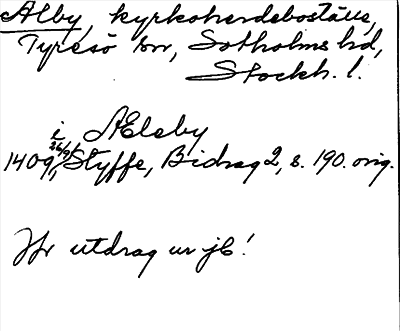 Alby, kyrkoherdeboställe,
Tyresö sn, Sotholms hd,
Stockh. l.
i Ælsby
1409 26/9, Styffe, Bidrag 2, s. 190. orig.
Hr utdrag ur jb!